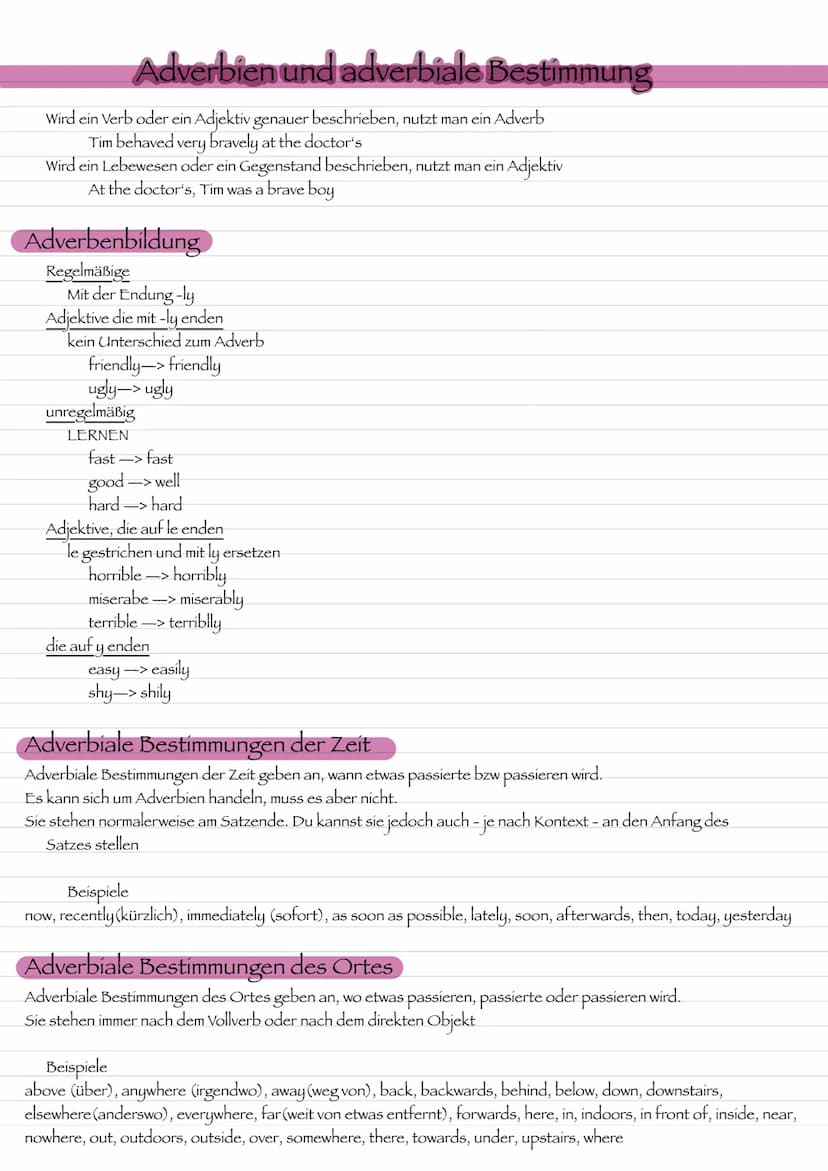 Adverbien und adverbiale Bestimmung
Wird ein Verb oder ein Adjektiv genauer beschrieben, nutzt man ein Adverb
Tim behaved very bravely at the doctor's
Wird ein Lebewesen oder ein Gegenstand beschrieben, nutzt man ein Adjektiv
At the doctor's, Tim was a brave boy
Adverbenbildung
Regelmäßige
Mit der Endung -ly
Adjektive die mit -ly enden
kein Unterschied zum Adverb
friendly—> friendly
ugly—> ugly
unregelmäßig
LERNEN
fast —> fast
good —> well
hard —> hard
Adjektive, die auf le enden
le gestrichen und mit ly ersetzen
horrible —> horribly
miserabe —> miserably
terrible —> terriblly
die auf y enden
easy —> easily
shy—> shily
Adverbiale Bestimmungen der Zeit
Adverbiale Bestimmungen der Zeit geben an, wann etwas passierte bzw passieren wird.
Es kann sich um Adverbien handeln, muss es aber nicht.
Sie stehen normalerweise am Satzende. Du kannst sie jedoch auch - je nach Kontext - an den Anfang des
Satzes stellen
Beispiele
now, recently(kürzlich), immediately (sofort), as soon as possible, lately, soon, afterwards, then, today, yesterday
Adverbiale Bestimmungen des Ortes
Adverbiale Bestimmungen des Ortes geben an, wo etwas passieren, passierte oder passieren wird.
Sie stehen immer nach dem Vollverb oder nach dem direkten Objekt
Beispiele
above (über), anywhere (irgendwo), away(weg von), back, backwards, behind, below, down, downstairs,
elsewhere(anderswo), everywhere, far(weit von etwas entfernt), forwards, here, in, indoors, in front of, inside, near,
nowhere, out, outdoors, outside, over, somewhere, there, towards, under, upstairs, where